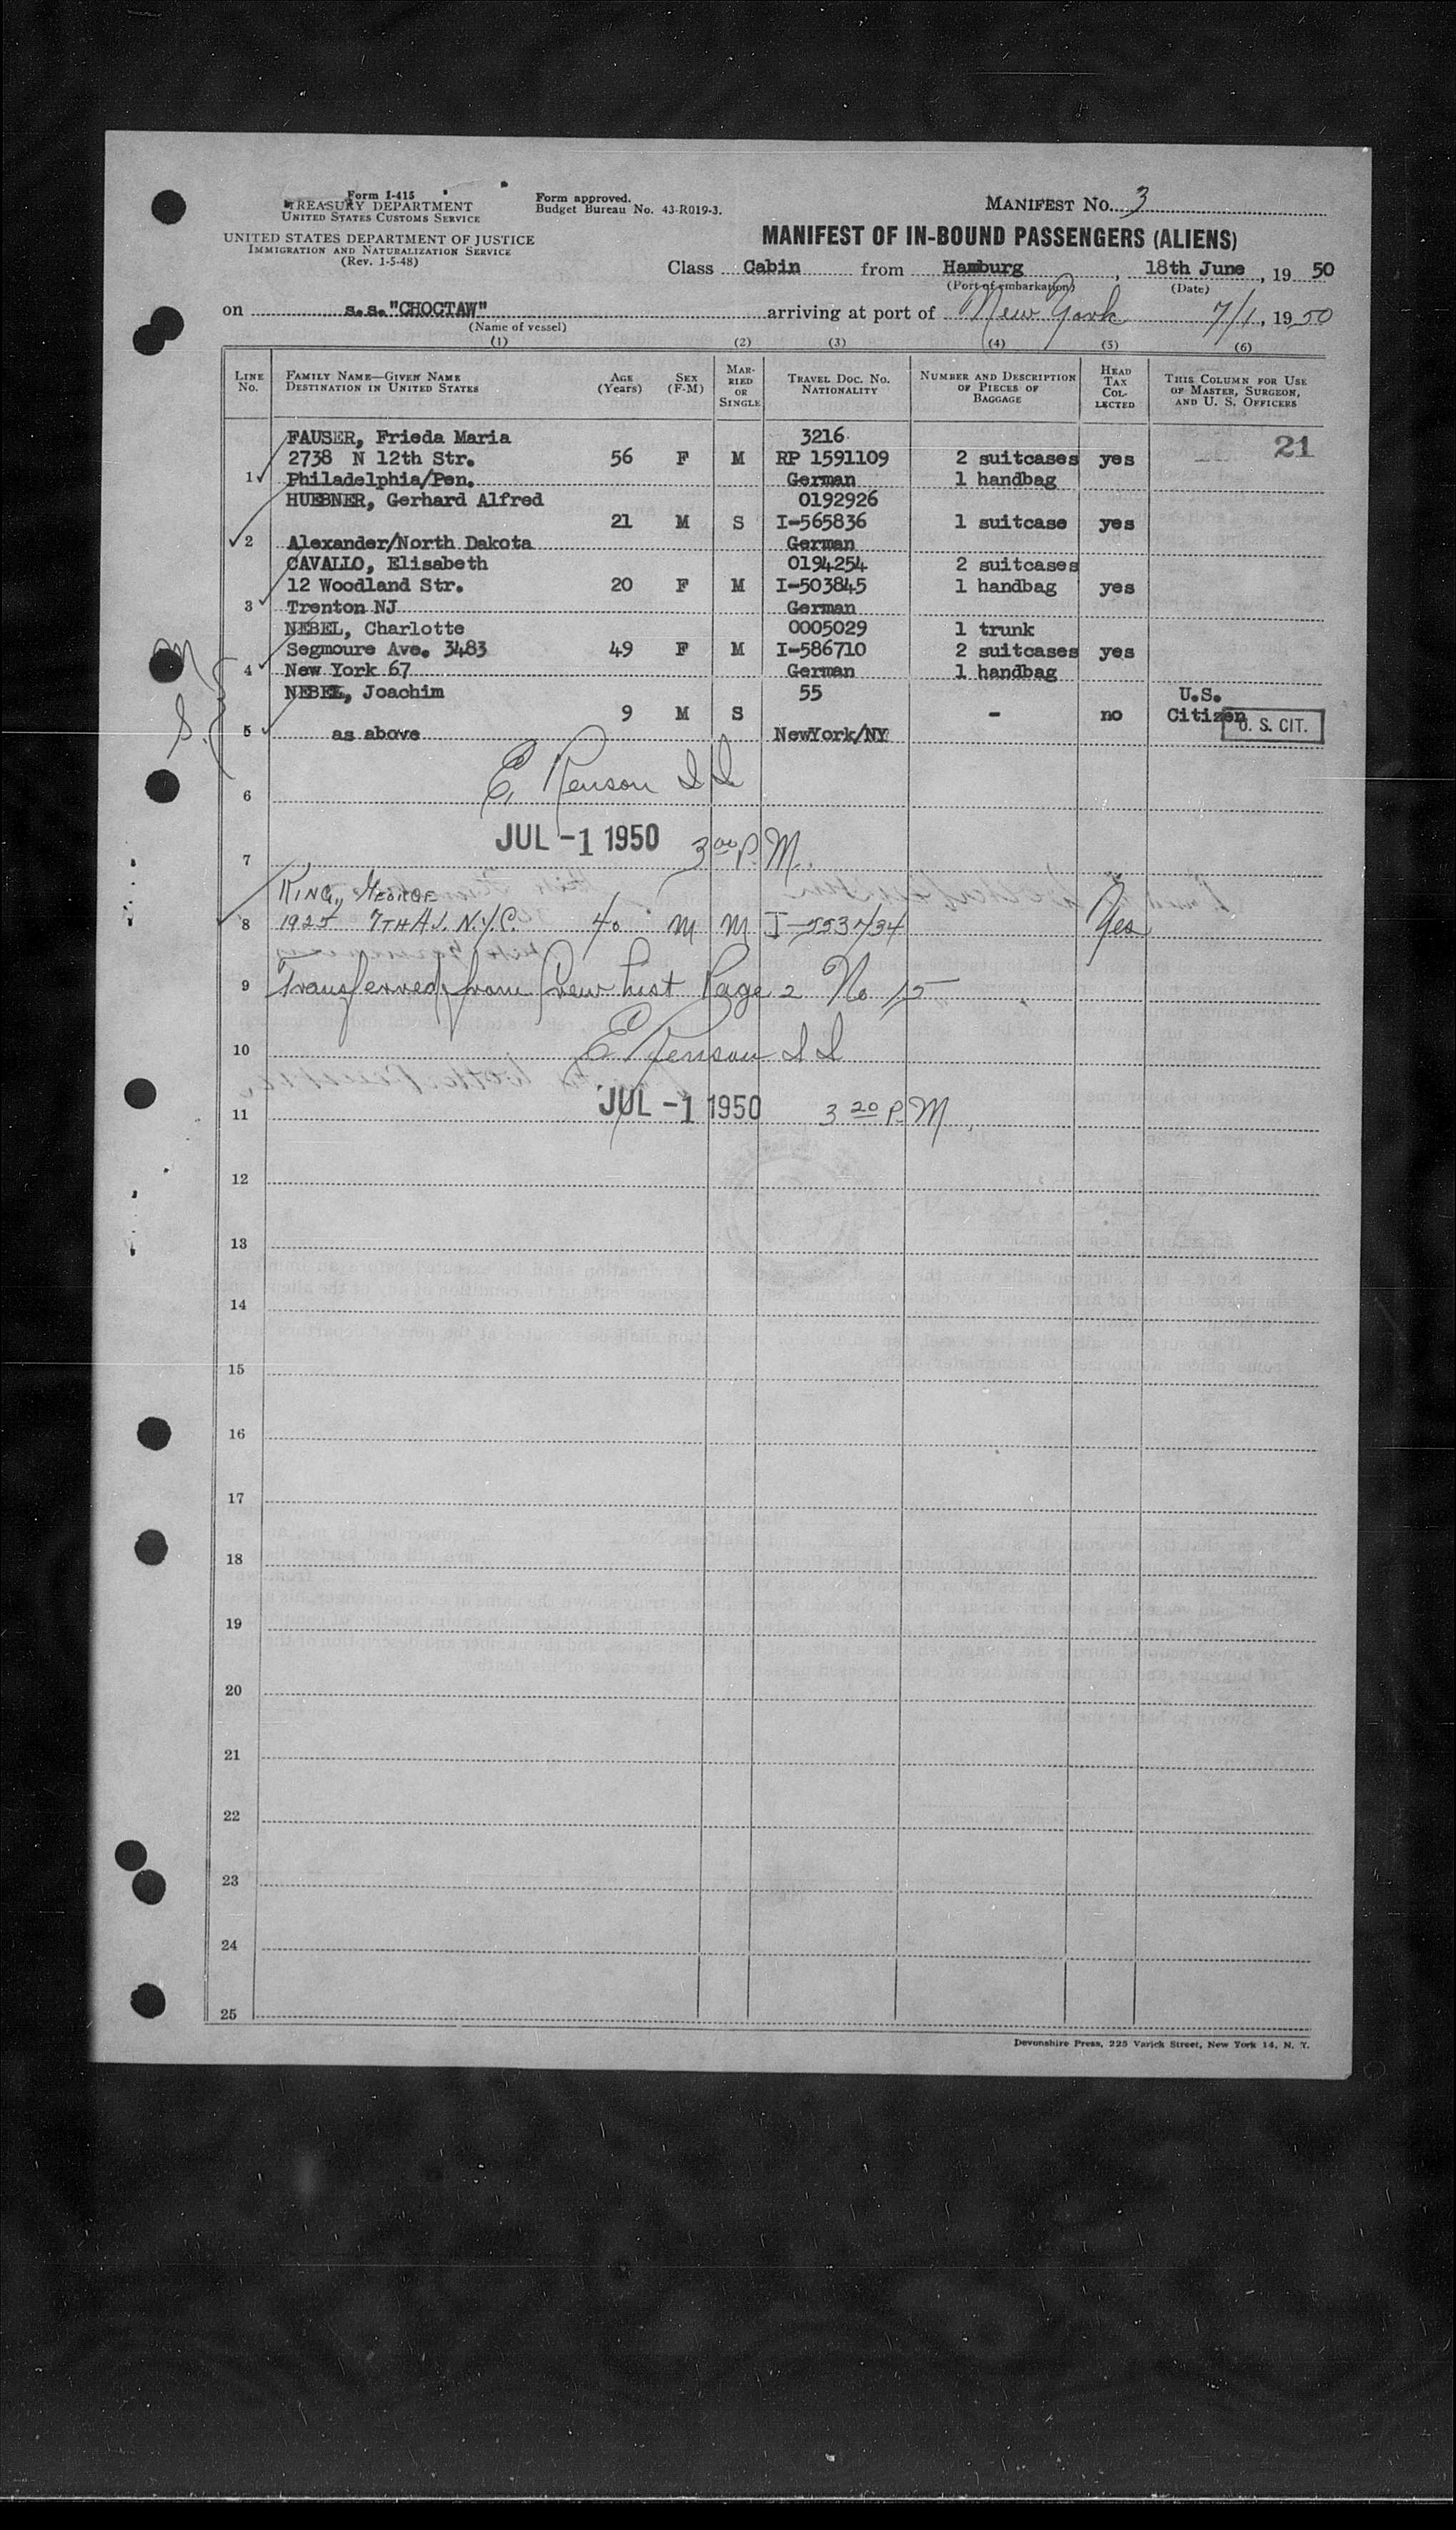 Form I-415
TREASURY DEPARTMENT
UNITED STATES CUSTOMS SERVICE
UNITED STATES DEPARTMENT OF JUSTICE
IMMIGRATION AND NATURALIZATION SERVICE
(Rev. 1-5-48)
Form approved.
Budget Bureau No. 43-R019-3.
MANIFEST NO. 3
MANIFEST OF IN-BOUND PASSENGERS (ALIENS)
Class Cabin from Hamburg, 18th June, 1950
(Port of embarkation) (Date)
on s.s."CHOCTAW" arriving at port of New York 7/1, 1950
(Name of vessel)
(1) (2) (3) (4) (5) (6)
LINE No. FAMILY NAME—GIVEN NAME DESTINATION IN UNITED STATES AGE (Years) SEX (F-M) MARRIED OR SINGLE TRAVEL DOC. NO. NATIONALITY NUMBER AND DESCRIPTION OF PIECES OF BAGGAGE HEAD TAX COLLECTED THIS COLUMN FOR USE OF MASTER, SURGEON, AND U. S. OFFICERS
FAUSER, Frieda Maria 3216 21
2738 N 12th Str. 56 F M RP 1591109 2 suitcases yes
1 Philadelphia/Pen. German 1 handbag
HUEBNER, Gerhard Alfred 0192926
21 M S I-565836 1 suitcase yes
2 Alexander/North Dakota German
CAVALLO, Elisabeth 0194254 2 suitcases
12 Woodland Str. 20 F M I-503845 1 handbag yes
3 Trenton NJ German
NEBEL, Charlotte 0005029 1 trunk
Segmoure Ave. 3483 49 F M I-586710 2 suitcases yes
4 New York 67 German 1 handbag
NEBEL, Joachim 55 U.S.
9 M S - no Citizen U. S. CIT.
5 as above NewYork/NY
E. Renson
6
JUL -1 1950 3 00 P.M.
7
KING, GEORGE
8 1925 7TH AV. N.Y.C. 40 M M I-553734 Yes
9 Transferred from Crew List Page 2 No 15
E Renson
10
JUL -1 1950 3 20 P.M.
11
12
13
14
15
16
17
18
19
20
21
22
23
24
25
Devonshire Press, 225 Varick Street, New York 14, N. Y.